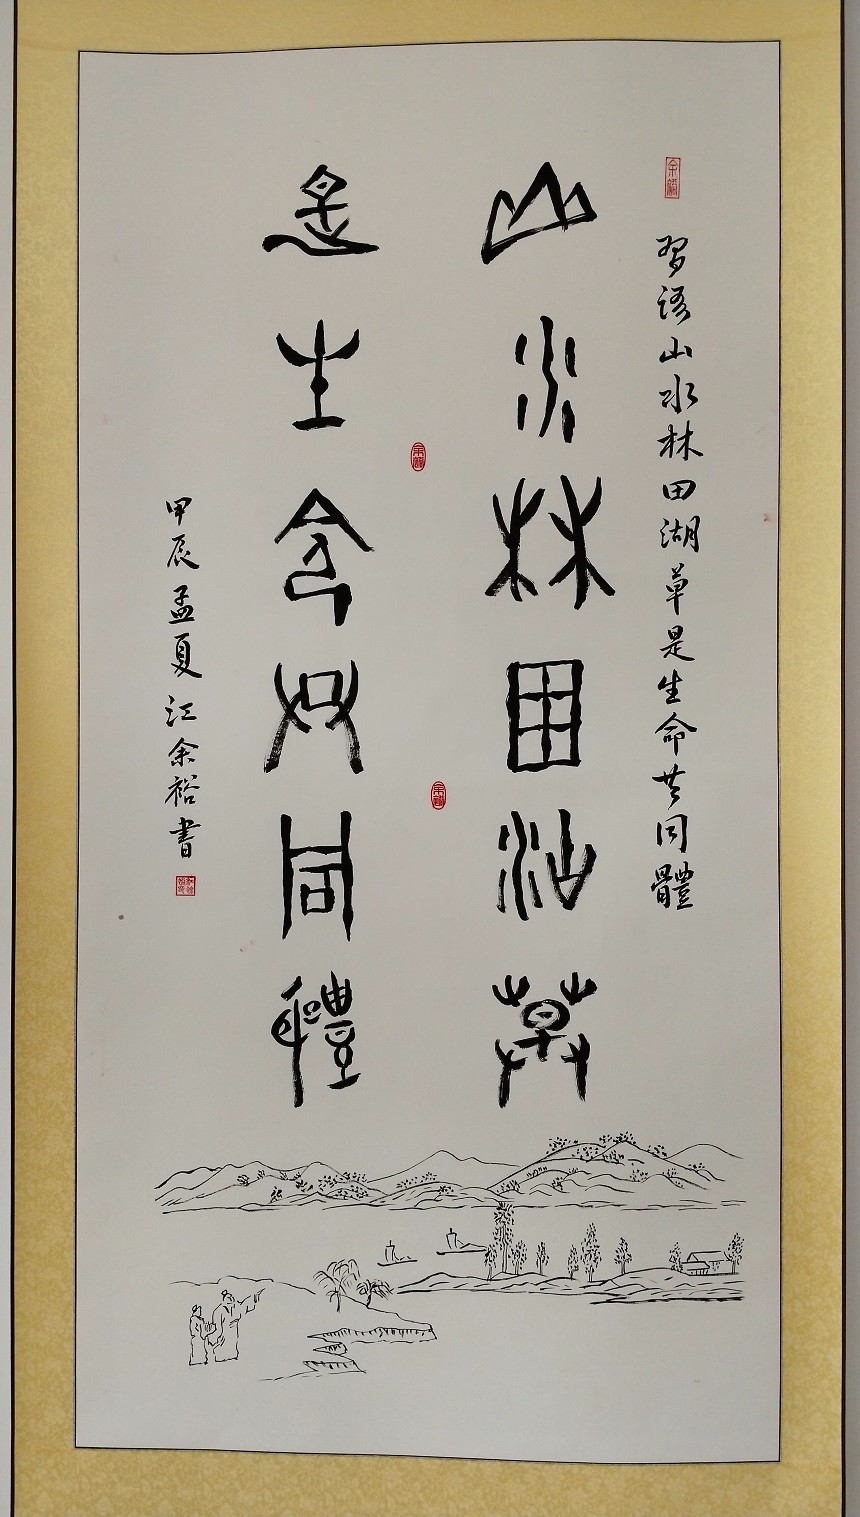 習语山水林田湖草是生命共同體
山水林田湖草
是生命共同體
甲辰孟夏江余裕書